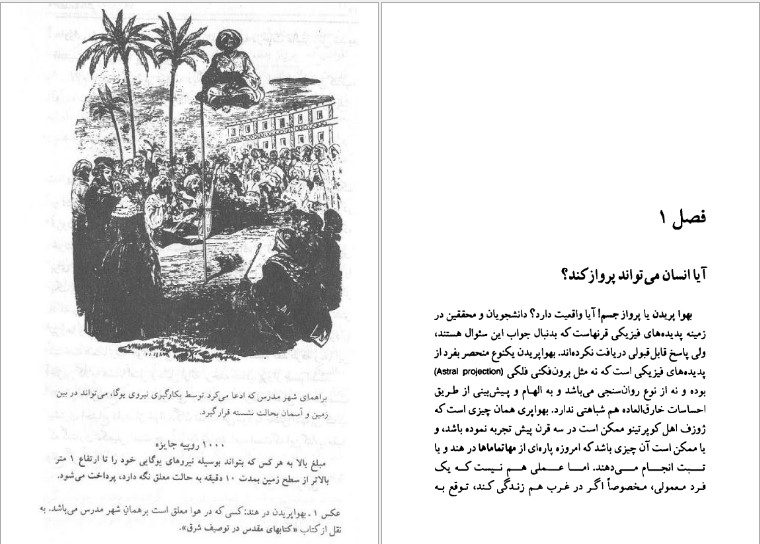 فصل ۱
آیا انسان می‌تواند پرواز کند؟
بهوا پریدن یا پرواز جسم! آیا واقعیت دارد؟ دانشجویان و محققین در
زمینه پدیده‌های فیزیکی قرنهاست که بدنبال جواب این سئوال هستند،
ولی پاسخ قابل قبولی دریافت نکرده‌اند. بهواپریدن یکنوع منحصر بفرد از
پدیده‌های فیزیکی است که نه مثل برون‌فکنی فلکی (Astral projection)
بوده و نه از نوع روان‌سنجی می‌باشد و به الهام و پیش‌بینی از طریق
احساسات خارق‌العاده هم شباهتی ندارد. بهواپری همان چیزی است که
ژوزف اهل کوپرتینو ممکن است در سه قرن پیش تجربه نموده باشد، و
یا ممکن است آن چیزی باشد که امروزه پاره‌ای از مهاتماماها در هند و یا
تبت انجام می‌دهند. اما عملی هم نیست که یک
فرد معمولی، مخصوصاً اگر در غرب هم زندگی کند، توقع به
براهمای شهر مدرس که ادعا می‌کرد توسط بکارگیری نیروی یوگا، می‌تواند در بین
زمین و آسمان بحالت نشسته قرار گیرد.
۱۰۰۰ روپیه جایزه
مبلغ بالا به هر کس که بتواند بوسیله نیروهای یوگایی خود را تا ارتفاع ۱ متر
بالاتر از سطح زمین بمدت ۱۰ دقیقه به حالت معلق نگه دارد، پرداخت می‌شود.
عکس ۱ ـ بهواپریدن در هند: کسی که در هوا معلق است برهمان شهر مدرس می‌باشد. به
نقل از کتاب «کتابهای مقدس در توصیف شرق».